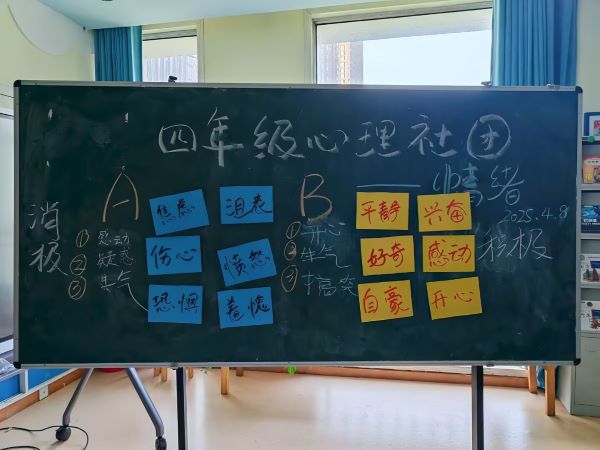 四年级心理社团
——情绪
2025.4.8
消极
A
①感动
②疑惑
③生气
焦虑
沮丧
伤心
愤怒
恐惧
羞愧
B
①开心
②生气
③搞笑
平静
兴奋
好奇
感动
自豪
开心
积极